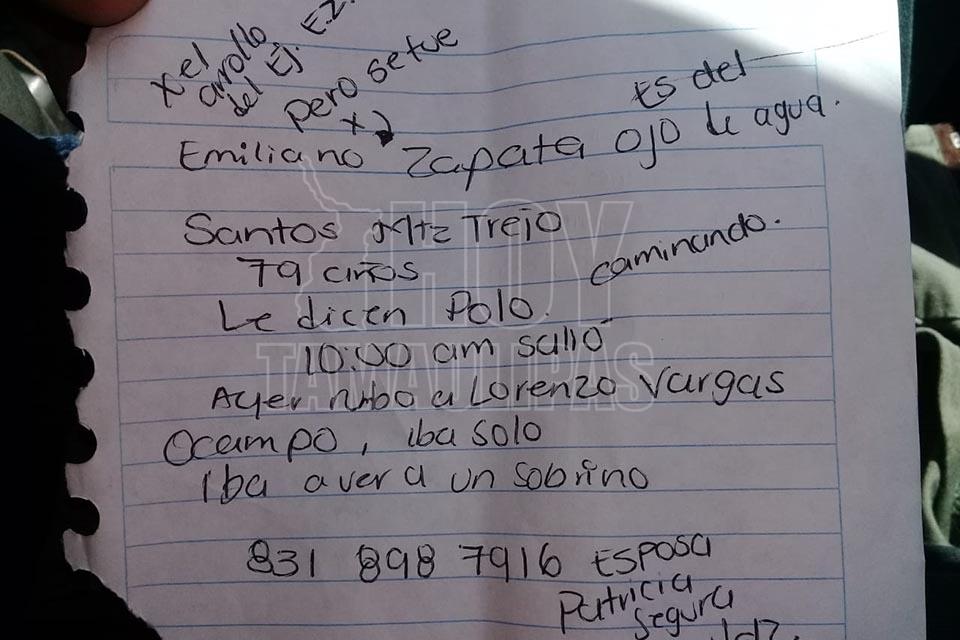 x el
arrollo
del Ej. E.Z.
pero se fue
x
Es del
Emiliano Zapata ojo de agua.
Santos Mtz Trejo
79 años
caminando.
Le dicen Polo.
10:00 am salió
Ayer rumbo a Lorenzo Vargas
Ocampo, iba solo
Iba a ver a un sobrino
831 898 7916 Esposa
Patricia
Segura
HOY
TAMAULIPAS